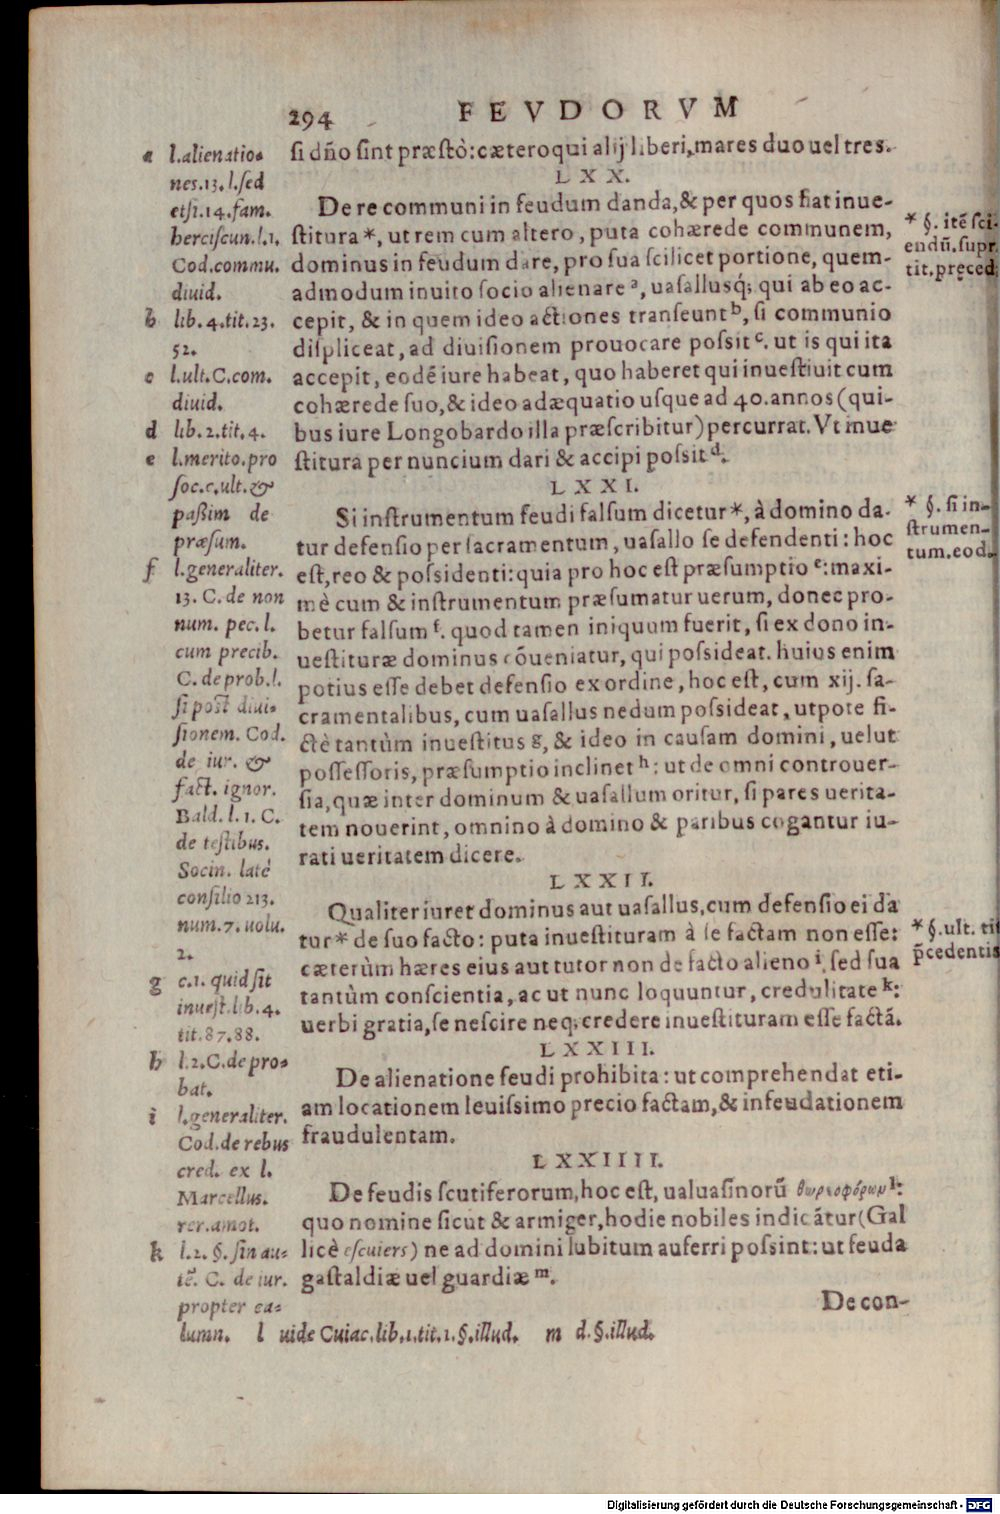 294 FEVDORVM
si dn̄o sint præstò: cæteroqui alij liberi, mares duo uel tres.
LXX.
De re communi in feudum danda, & per quos fiat inue-
stitura*, ut rem cum altero, puta cohærede communem,
dominus in feudum dare, pro sua scilicet portione, quem-
admodum inuito socio alienare ᵃ, uasallusq́; qui ab eo ac-
cepit, & in quem ideo actiones transeunt ᵇ, si communio
displiceat, ad diuisionem prouocare possit ᶜ. ut is qui ita
accepit, eodē iure habeat, quo haberet qui inuestiuit cum
cohærede suo, & ideo adæquatio usque ad 40. annos (qui-
bus iure Longobardo illa præscribitur) percurrat. Vt inue
stitura per nuncium dari & accipi possit ᵈ.
LXXI.
Si instrumentum feudi falsum dicetur*, à domino da-
tur defensio per sacramentum, uasallo se defendenti: hoc
est, reo & possidenti: quia pro hoc est præsumptio ᵉ: maxi-
mè cum & instrumentum præsumatur uerum, donec pro-
betur falsum ᶠ. quod tamen iniquum fuerit, si ex dono in-
uestituræ dominus cōueniatur, qui possideat. huius enim
potius esse debet defensio ex ordine, hoc est, cum xij. sa-
cramentalibus, cum uasallus nedum possideat, utpote fi-
ctè tantùm inuestitus ᵍ, & ideo in causam domini, uelut
possessoris, præsumptio inclinet ʰ: ut de omni controuer-
sia, quæ inter dominum & uasallum oritur, si pares uerita-
tem nouerint, omnino à domino & paribus cogantur iu-
rati ueritatem dicere.
LXXII.
Qualiter iuret dominus aut uasallus, cum defensio ei da
tur* de suo facto: puta inuestituram à se factam non esse:
cæterùm hæres eius aut tutor non de facto alieno ⁱ, sed sua
tantùm conscientia, ac ut nunc loquuntur, credulitate ᵏ:
uerbi gratia, se nescire neq; credere inuestituram esse factā.
LXXIII.
De alienatione feudi prohibita: ut comprehendat eti-
am locationem leuissimo precio factam, & infeudationem
fraudulentam.
LXXIIII.
De feudis scutiferorum, hoc est, ualuasinorū θωρακοφόρων ˡ:
quo nomine sicut & armiger, hodie nobiles indicātur (Gal
licè escuiers) ne ad domini lubitum auferri possint: ut feuda
gastaldiæ uel guardiæ ᵐ.
De con-
a l. alienatio-
nes. 13. l. sed
etsi. 14. fam.
herciscun. l. 1.
Cod. commu.
diuid.
b lib. 4. tit. 23.
52.
c l. ult. C. com.
diuid.
d lib. 2. tit. 4.
e l. merito. pro
soc. c. ult. &
paßim de
præsum.
f l. generaliter.
13. C. de non
num. pec. l.
cum precib.
C. de prob. l.
si post diui-
sionem. Cod.
de iur. &
fact. ignor.
Bald. l. 1. C.
de testibus.
Socin. latè
consilio 213.
num. 7. uolu.
2.
g c. 1. quid sit
inuest. lib. 4.
tit. 87. 88.
h l. 2. C. de pro-
bat.
i l. generaliter.
Cod. de rebus
cred. ex l.
Marcellus.
rer. amot.
k l. 2. §. sin au-
tē. C. de iur.
propter ca-
lumn. l uide Cuiac. lib. 1. tit. 1. §. illud. m d. §. illud.
* §. itē sci-
endū. supr.
tit. præced.
* §. si in-
strumen-
tum. eod.
* §. ult. tit
p̄cedentis
Digitalisierung gefördert durch die Deutsche Forschungsgemeinschaft - DFG